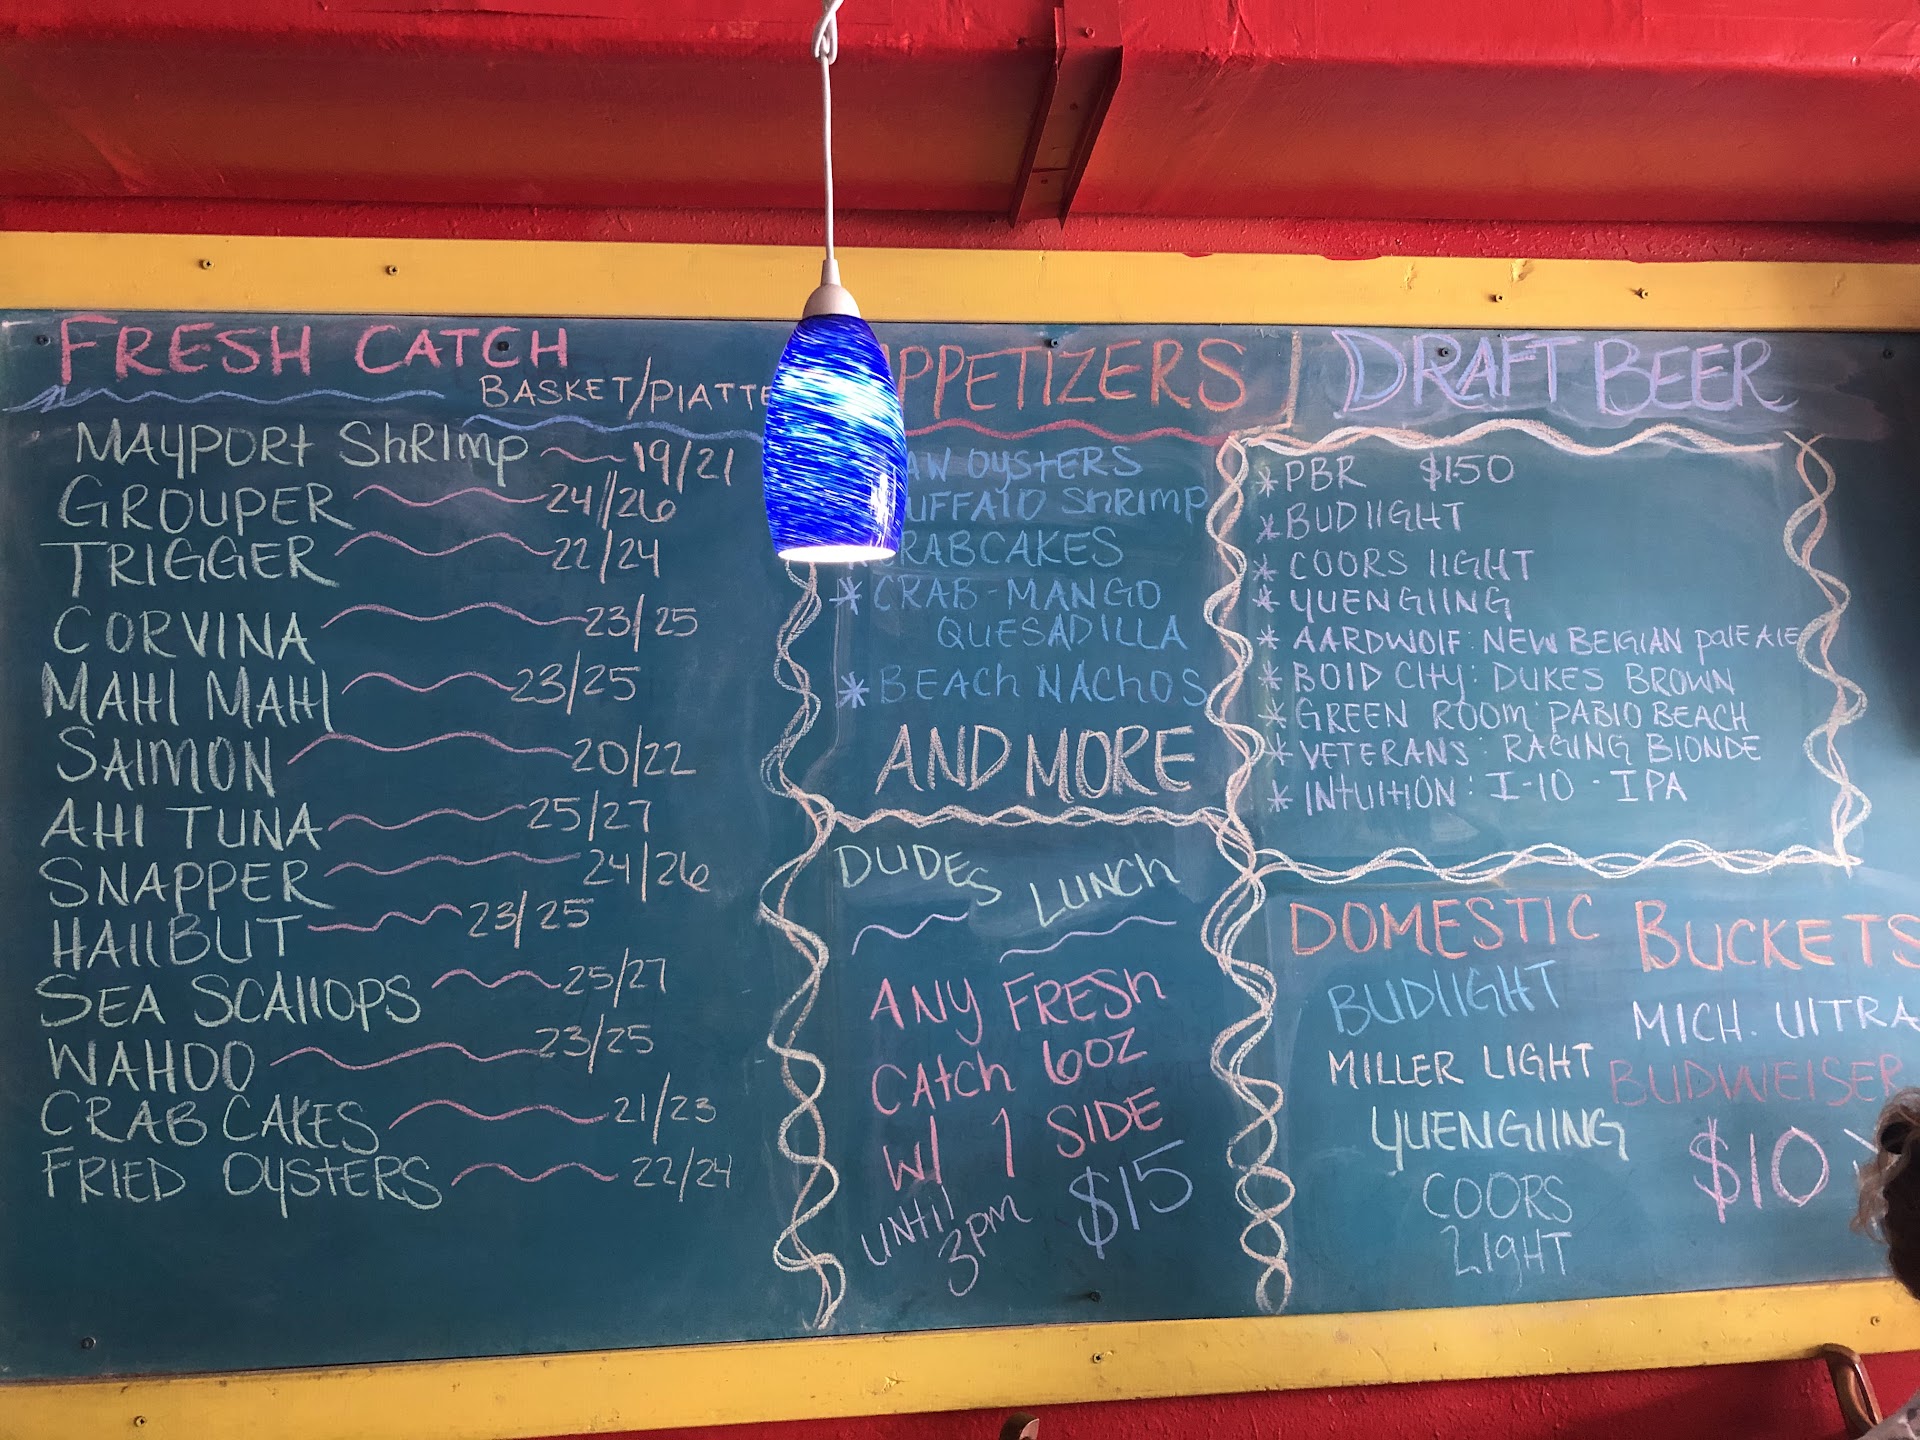 FRESH CATCH
BASKET/PLATTE
MAYPORT SHRIMP 19/21
GROUPER 24/26
TRIGGER 22/24
CORVINA 23/25
MAHI MAHI 23/25
SALMON 20/22
AHI TUNA 25/27
SNAPPER 24/26
HALLBUT 23/25
SEA SCALLOPS 25/27
WAHOO 23/25
CRAB CAKES 21/23
FRIED OYSTERS 22/24
PPETIZERS
AW OYSTERS
UFFALO SHRIMP
RABCAKES
* CRAB-MANGO
QUESADILLA
* BEACH NACHOS
AND MORE
DUDES LUNCH
ANY FRESH
CATCH 6OZ
W/ 1 SIDE
UNTIL 3PM $15
DRAFT BEER
* PBR $1.50
* BUDLIGHT
* COORS LIGHT
* YUENGLING
* AARDWOLF: NEW BELGIAN PALE ALE
* BOLD CITY: DUKES BROWN
* GREEN ROOM: PABLO BEACH
* VETERANS: RAGING BLONDE
* INTUITION: I-10 - IPA
DOMESTIC BUCKETS
BUDLIGHT
MICH. ULTRA
MILLER LIGHT
BUDWEISER
YUENGLING
COORS
LIGHT
$10